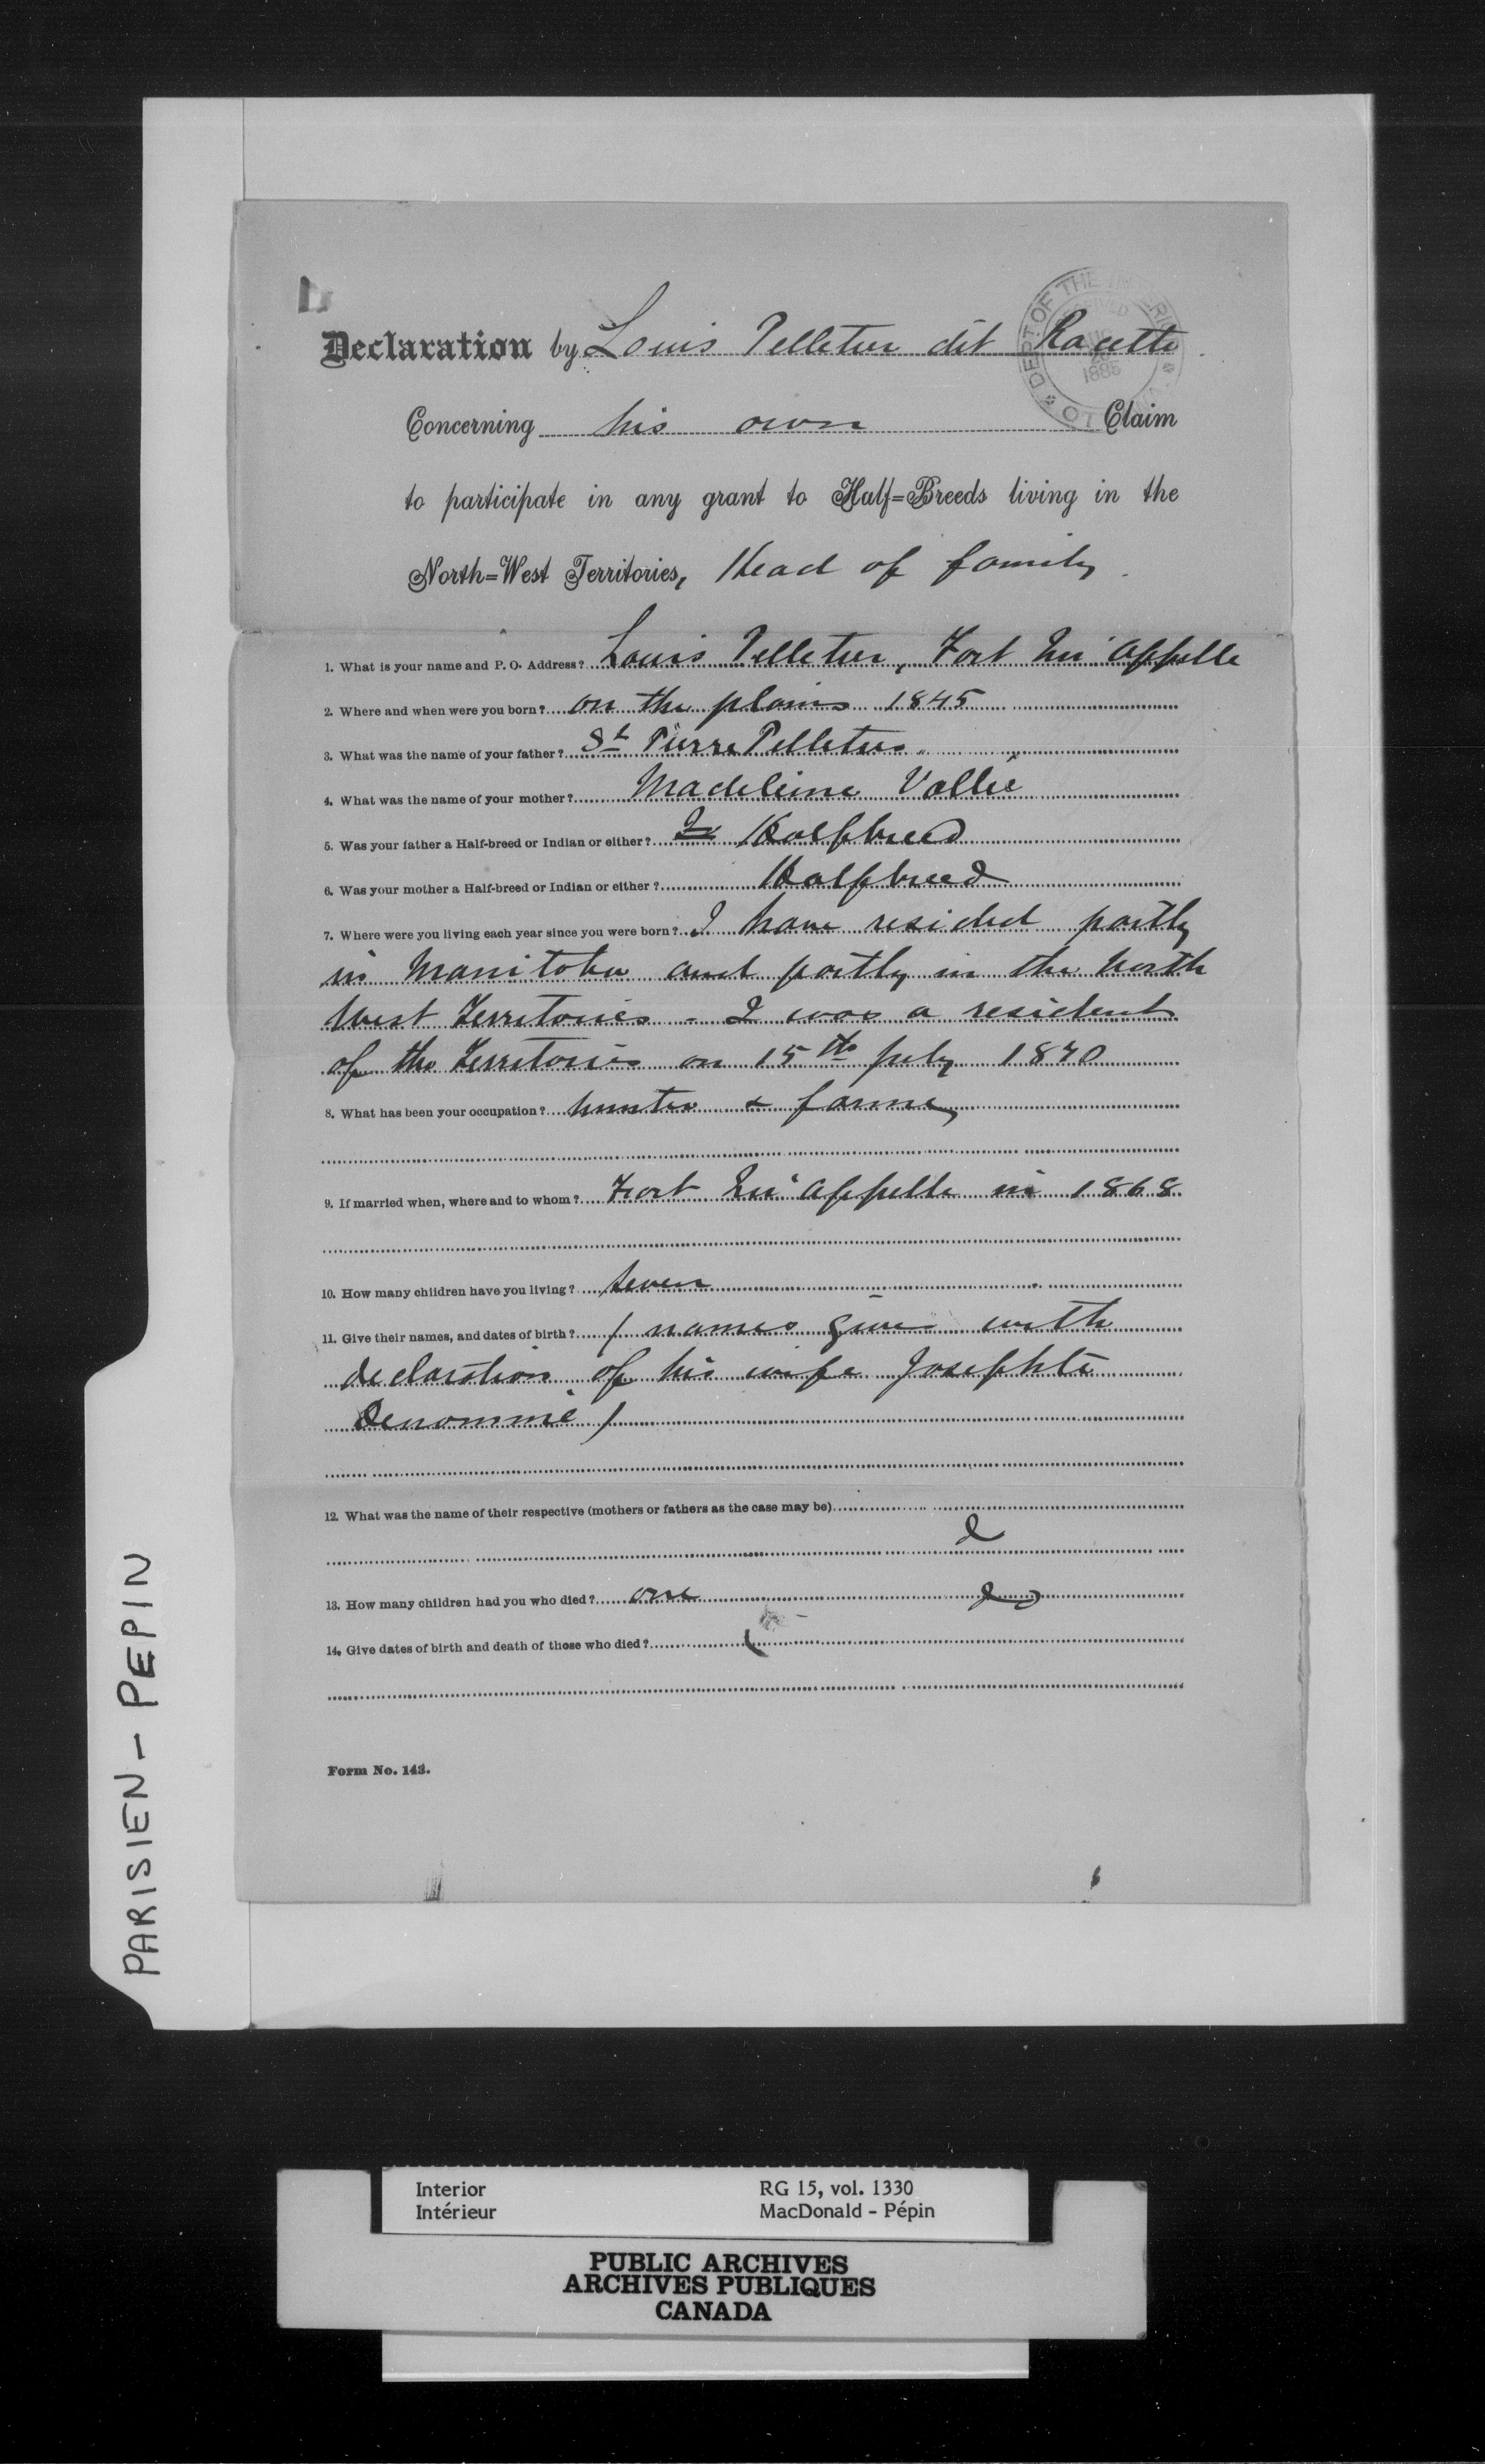 DEPT. OF THE INTERIOR
1885
Declaration by Louis Pelletier dit Racette
Concerning his own Claim
to participate in any grant to Half=Breeds living in the
North=West Territories, Head of family
1. What is your name and P. O. Address? Louis Pelletier, Fort Qu'Appelle
2. Where and when were you born? on the plains 1845
3. What was the name of your father? St Pierre Pelletier
4. What was the name of your mother? Madeleine Vallié
5. Was your father a Half-breed or Indian or either? Halfbreed
6. Was your mother a Half-breed or Indian or either? Halfbreed
7. Where were you living each year since you were born? I have resided partly
in Manitoba and partly in the North
West Territories - I was a resident
of the Territories on 15th July 1870
8. What has been your occupation? hunter & farmer
9. If married when, where and to whom? Fort Qu'Appelle in 1868
10. How many children have you living? seven
11. Give their names, and dates of birth? / names given with
declaration of his wife Josephte
Denommé /
12. What was the name of their respective (mothers or fathers as the case may be)
13. How many children had you who died? one
14. Give dates of birth and death of those who died?
Form No. 143.
PARISIEN - PEPIN
Interior RG 15, vol. 1330
Intérieur MacDonald - Pépin
PUBLIC ARCHIVES
ARCHIVES PUBLIQUES
CANADA